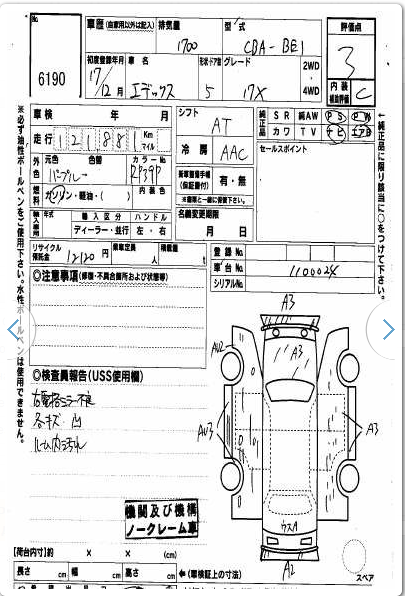 No.
6190
車歴 (自家用以外は記入)
排気量
1700
型式
CBA-BE1
評価点
3
初度登録年月
17/12月
車名
エディックス
形状・ドア数
5
グレード
17X
2WD
4WD
内装
補助評価
C
車検 年 月
走行 121881 Km
マイル
シフト
AT
冷房
AAC
純正品
SR 純AW PS PW
カワ TV ナビ エアB
セールスポイント
外色
元色 色替 カラーNo.
パープル RP39P
燃料
ガソリン・軽油・( )
内装色
輸入車用
輸入区分 ハンドル
ディーラー・並行 左・右
新車整備手帳
(保証書付)
有・無
※書類と一緒に保管下さい。
名義変更期限
月 日
リサイクル
預託金
12120 円
乗車定員
人
積載量
登録No.
車台No.
1100024
シリアルNo.
※必ず油性ボールペンをご使用下さい。水性ボールペンは使用できません。
←純正品に限り該当に○をつけて下さい。
◎注意事項 (修復・不具合箇所および状態等)
◎検査員報告 (USS使用欄)
右電格ミラー不良
各キズ 凹
ルーム内よごれ
A3
A3
AU2
AU3
A3
ウスA
A2
機関及び機構
ノークレーム車
【荷台内寸】約 × × (cm)
長さ cm 幅 cm 高さ cm
←(車検証上の寸法)
スペア